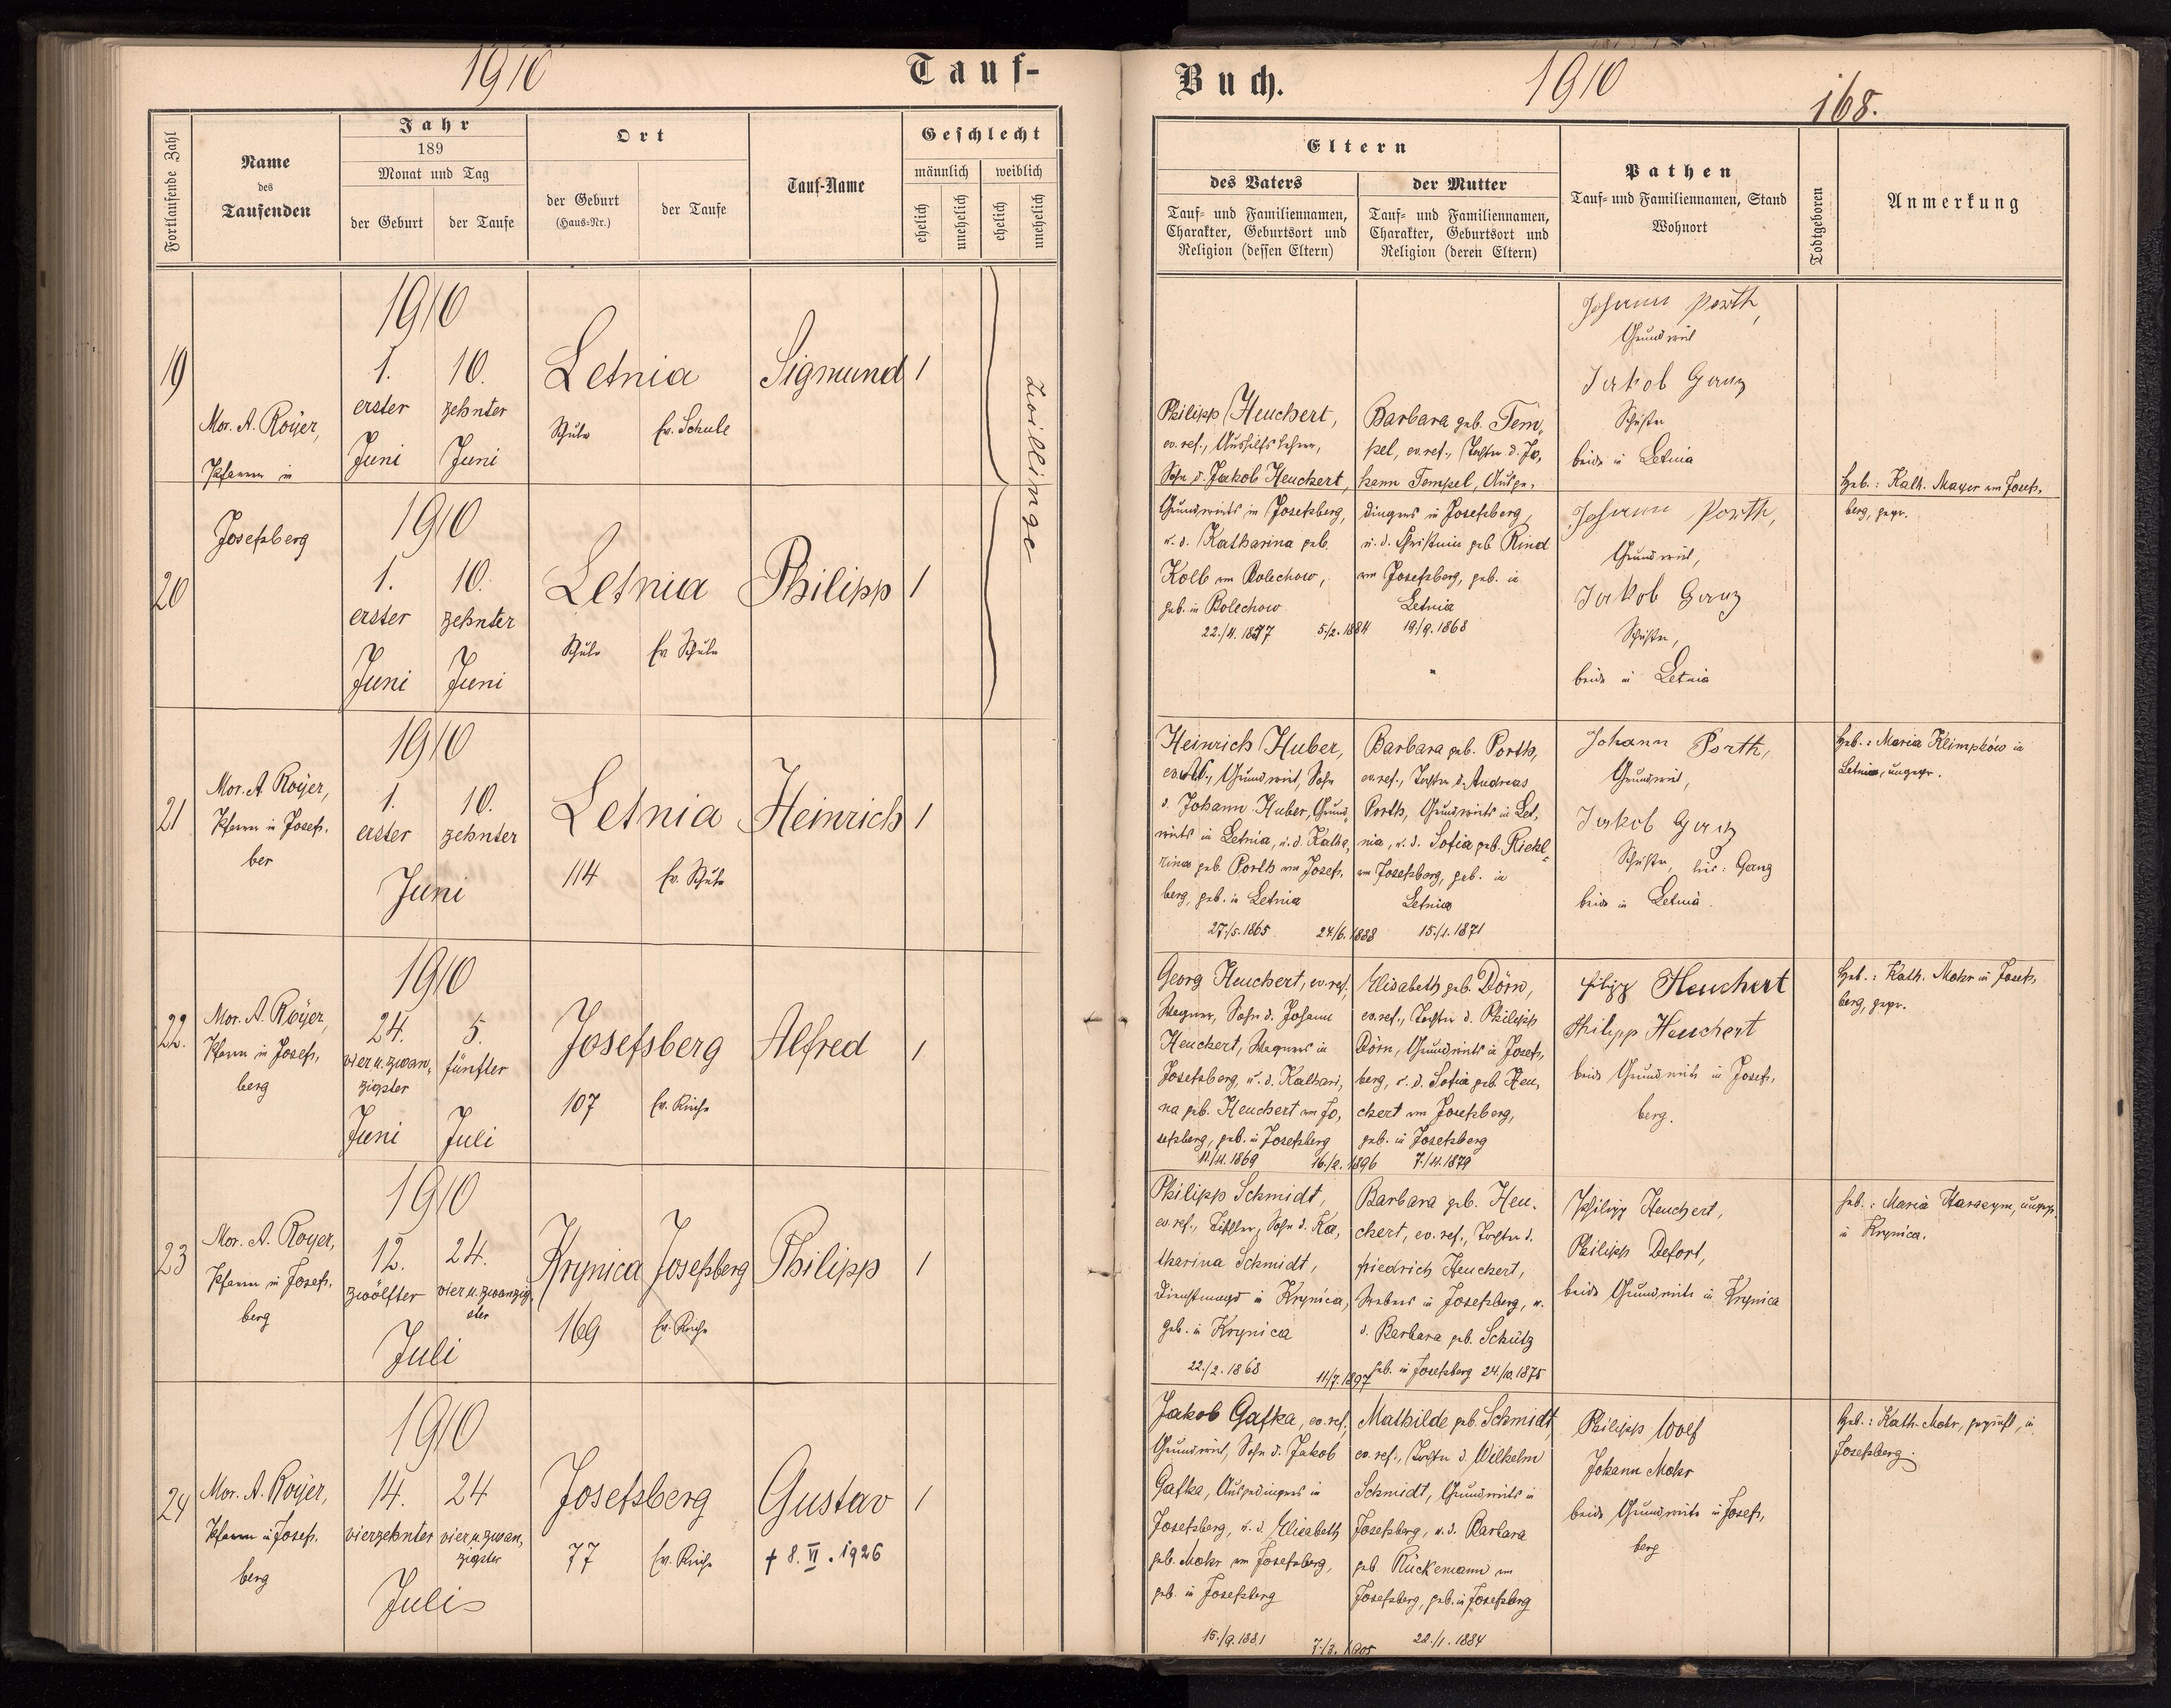 1910
Tauf-
Buch.
1910
168.
Fortlaufende Zahl
Name
des
Taufenden
Jahr
189
Monat und Tag
der Geburt
der Taufe
Ort
der Geburt
(Haus-Nr.)
der Taufe
Tauf-Name
Geschlecht
männlich
weiblich
ehelich
unehelich
ehelich
unehelich
Eltern
des Vaters
Tauf- und Familiennamen,
Charakter, Geburtsort und
Religion (dessen Eltern)
der Mutter
Tauf- und Familiennamen,
Charakter, Geburtsort und
Religion (deren Eltern)
Pathen
Tauf- und Familiennamen, Stand
Wohnort
Todtgeboren
Anmerkung
19
Mor. A. Royer,
Pfarrer in
Josefsberg
1910
1.
erster
Juni
10.
zehnter
Juni
Letnia
Schule
Ev. Schule
Sigmund
1
Zwillinge
Philipp Heuchert,
ev. ref., Aushilfslehrer,
Sohn d. Jakob Heuchert,
Grundwirts in Josefsberg,
u. d. Katharina geb.
Kolb aus Bolechow,
geb. in Bolechow
22./4. 1857
5./2. 1884
Barbara geb. Tem,
pel, ev. ref., Tochter d. Jo,
hann Tempel, Ausge,
dingers in Josefsberg,
u. d. Christine geb. Rind
aus Josefsberg, geb. in
Letnia
19./9. 1868
Johann Porth,
Grundwirt
Jakob Ganz
Schuster
beide in Letnia
Heb.: Kath. Mayer aus Josefs,
berg, gepr.
20
1910
1.
erster
Juni
10.
zehnter
Juni
Letnia
Schule
Ev. Schule
Philipp
1
Johann Porth,
Grundwirt,
Jakob Ganz
Schuster,
beide in Letnia
21
Mor. A. Royer,
Pfarrer in Josefs,
ber
1910
1.
erster
10.
zehnter
Juni
Letnia
114
Ev. Schule
Heinrich
1
Heinrich Huber,
Grundwirt, Sohn
d. Johann Huber, Grund,
wirts in Letnia, u. d. Katha,
rina geb. Porth aus Josefs,
berg, geb. in Letnia
27./5. 1865
24./6. 1888
Barbara geb. Porth,
ev. ref., Tochter d. Andreas
Porth, Grundwirts in Let,
nia, u. d. Sofia geb. Riehl
aus Josefsberg, geb. in
Letnia
15./1. 1871
Johann Porth,
Grundwirt,
Jakob Ganz
Schuster, Ganz
beide in Letnia.
Heb.: Maria Klimpków in
Letnia, ungepr.
22.
Mor. A. Royer,
Pfarrer in Josefs,
berg
1910
24.
vier u. zwan,
zigster
Juni
5.
fünfter
Juli
Josefsberg
107
Ev. Kirche
Alfred
1
Georg Heuchert, ev. ref.,
Wagner, Sohn d. Johann
Heuchert, Wagners in
Josefsberg, u. d. Kathari,
na geb. Heuchert aus Jo,
sefsberg, geb. in Josefsberg
11./11. 1869
16./2. 1896
Elisabeth geb. Dörn,
ev. ref., Tochter d. Philipp
Dörn, Grundwirts in Josefs,
berg, u. d. Sofia geb. Heu,
chert aus Josefsberg,
geb. in Josefsberg
7./11. 1879
Filipp Heuchert
Philipp Heuchert
beide Grundwirte in Josefs,
berg.
Heb.: Kath. Mohr in Josefs,
berg, gepr.
23
Mor. A. Royer,
Pfarrer in Josefs,
berg
1910
12.
zwölfter
24.
vier u. zwanzig,
ster
Juli
Krynica
169
Josefsberg
Ev. Kirche
Philipp
1
Philipp Schmidt,
ev. ref., Tischler, Sohn d. Ka,
tharina Schmidt,
Dienstmagd in Krynica,
geb. in Krynica
22./2. 1868
11./7. 1897
Barbara geb. Heu,
chert, ev. ref., Tochter d.
Friedrich Heuchert,
Webers in Josefsberg, u.
d. Barbara geb. Schütz
geb. in Josefsberg 24./10. 1875
Philipp Heuchert,
Philipp Defort,
beide Grundwirte in Krynica
Heb.: Maria Harasym, ungepr.
in Krynica.
24
Mor. A. Royer,
Pfarrer in Josefs,
berg
1910
14.
vierzehnter
24
vier u. zwan,
zigster
Juli
Josefsberg
77
Ev. Kirche
Gustav
† 8. VI. 1926
1
Jakob Gafka, ev. ref.,
Grundwirt, Sohn d. Jakob
Gafka, Ausgedingers in
Josefsberg, u. d. Elisabeth
geb. Mohr aus Josefsberg,
geb. in Josefsberg
15./9. 1881
7./3. 1905
Mathilde geb. Schmidt,
ev. ref., Tochter d. Wilhelm
Schmidt, Grundwirts in
Josefsberg, u. d. Barbara
geb. Rückemann aus
Josefsberg, geb. in Josefsberg
22./1. 1884
Philipp Wolf
Johann Mohr
beide Grundwirte in Josefs,
berg
Heb.: Kath. Mohr, geprüft, in
Josefsberg.